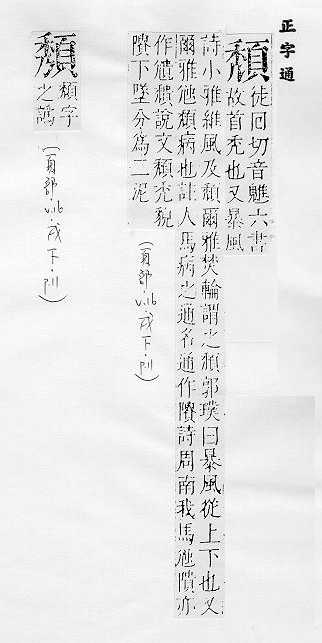 正字通
頽
徒回切音魋六書
故首禿也又暴風
詩小雅維風及頽爾雅焚輪謂之頽郭璞曰暴風從上下也又
爾雅虺頽病也註人馬病之通名通作隤詩周南我馬虺隤亦
作穨說文頽禿貌
隤下墜分爲二泥
(頁部.v.16.戌下.p.11)
頽字
之譌
(頁部.v.16.戌下.p.11)